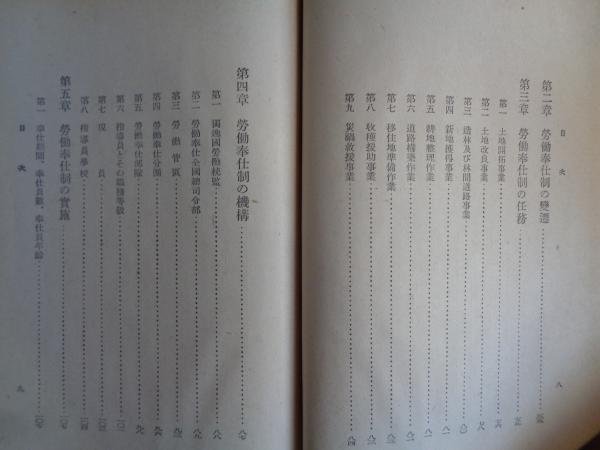 目次
第二章 勞働奉仕制の變遷
第三章 勞働奉仕制の任務
第一 土地開拓事業
第二 土地改良事業
第三 造林及び林間道路事業
第四 新地獲得事業
第五 耕地整理作業
第六 道路構築作業
第七 移住地準備作業
第八 收穫援助事業
第九 災禍救援事業
八
第四章 勞働奉仕制の機構
第一 獨逸國勞働統監
第二 勞働奉仕全國總司令部
第三 勞働管區
第四 勞働奉仕分團
第五 勞働奉仕部隊
第六 指導員とその職務等級
第七 現員
第八 指導員學校
第五章 勞働奉仕制の實施
第一 奉仕期間、奉仕員數、奉仕員年齡
目次
九